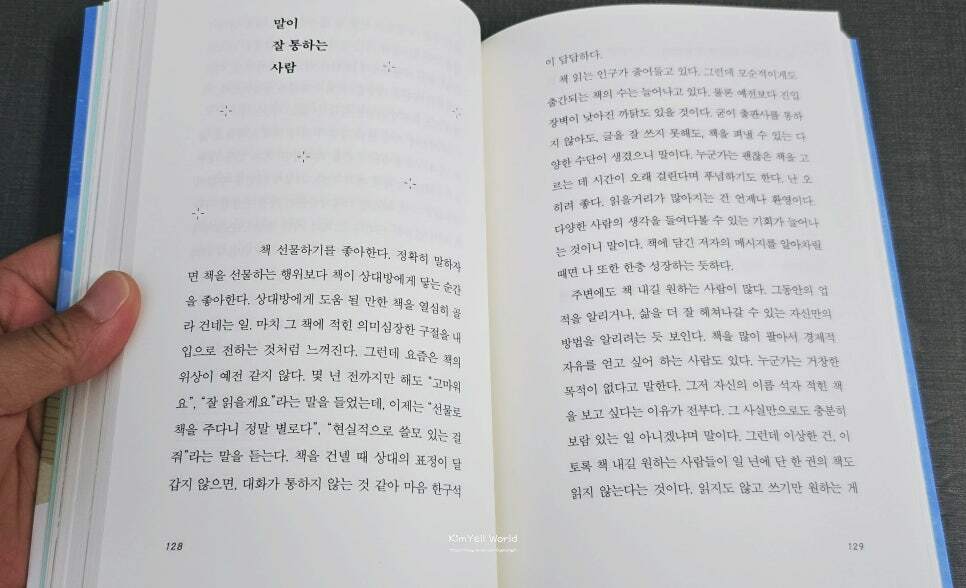 말이
잘 통하는
사람
책 선물하기를 좋아한다. 정확히 말하자
면 책을 선물하는 행위보다 책이 상대방에게 닿는 순간
을 좋아한다. 상대방에게 도움 될 만한 책을 열심히 골
라 건네는 일. 마치 그 책에 적힌 의미심장한 구절을 내
입으로 전하는 것처럼 느껴진다. 그런데 요즘은 책의
위상이 예전 같지 않다. 몇 년 전까지만 해도 “고마워
요”, “잘 읽을게요”라는 말을 들었는데, 이제는 “선물로
책을 주다니 정말 별로다”, “현실적으로 쓸모 있는 걸
줘”라는 말을 듣는다. 책을 건넬 때 상대의 표정이 달
갑지 않으면, 대화가 통하지 않는 것 같아 마음 한구석
128
이 답답하다.
책 읽는 인구가 줄어들고 있다. 그런데 모순적이게도
출간되는 책의 수는 늘어나고 있다. 물론 예전보다 진입
장벽이 낮아진 까닭도 있을 것이다. 굳이 출판사를 통하
지 않아도, 글을 잘 쓰지 못해도, 책을 펴낼 수 있는 다
양한 수단이 생겼으니 말이다. 누군가는 괜찮은 책을 고
르는 데 시간이 오래 걸린다며 푸념하기도 한다. 난 오
히려 좋다. 읽을거리가 많아지는 건 언제나 환영이다.
다양한 사람의 생각을 들여다볼 수 있는 기회가 늘어나
는 것이니 말이다. 책에 담긴 저자의 메시지를 알아차릴
때면 나 또한 한층 성장하는 듯하다.
주변에도 책 내길 원하는 사람이 많다. 그동안의 업
적을 알리거나, 삶을 더 잘 헤쳐나갈 수 있는 자신만의
방법을 알리려는 듯 보인다. 책을 많이 팔아서 경제적
자유를 얻고 싶어 하는 사람도 있다. 누군가는 거창한
목적이 없다고 말한다. 그저 자신의 이름 석자 적힌 책
을 보고 싶다는 이유가 전부다. 그 사실만으로도 충분히
보람 있는 일 아니겠냐며 말이다. 그런데 이상한 건, 이
토록 책 내길 원하는 사람들이 일 년에 단 한 권의 책도
읽지 않는다는 것이다. 읽지도 않고 쓰기만 원하는 게
129
KimYell World